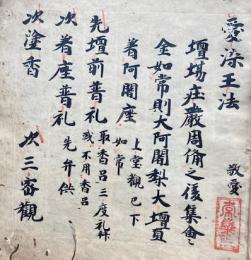 愛染王法
敬彙
壇場庄嚴周備之後集會之
金如常則大阿闍梨大壇
着阿闍座 上堂觀已下
如常
先壇前普礼 取香呂三度礼
或不用香呂
次着座普礼 先弁供
次塗香 次三密觀